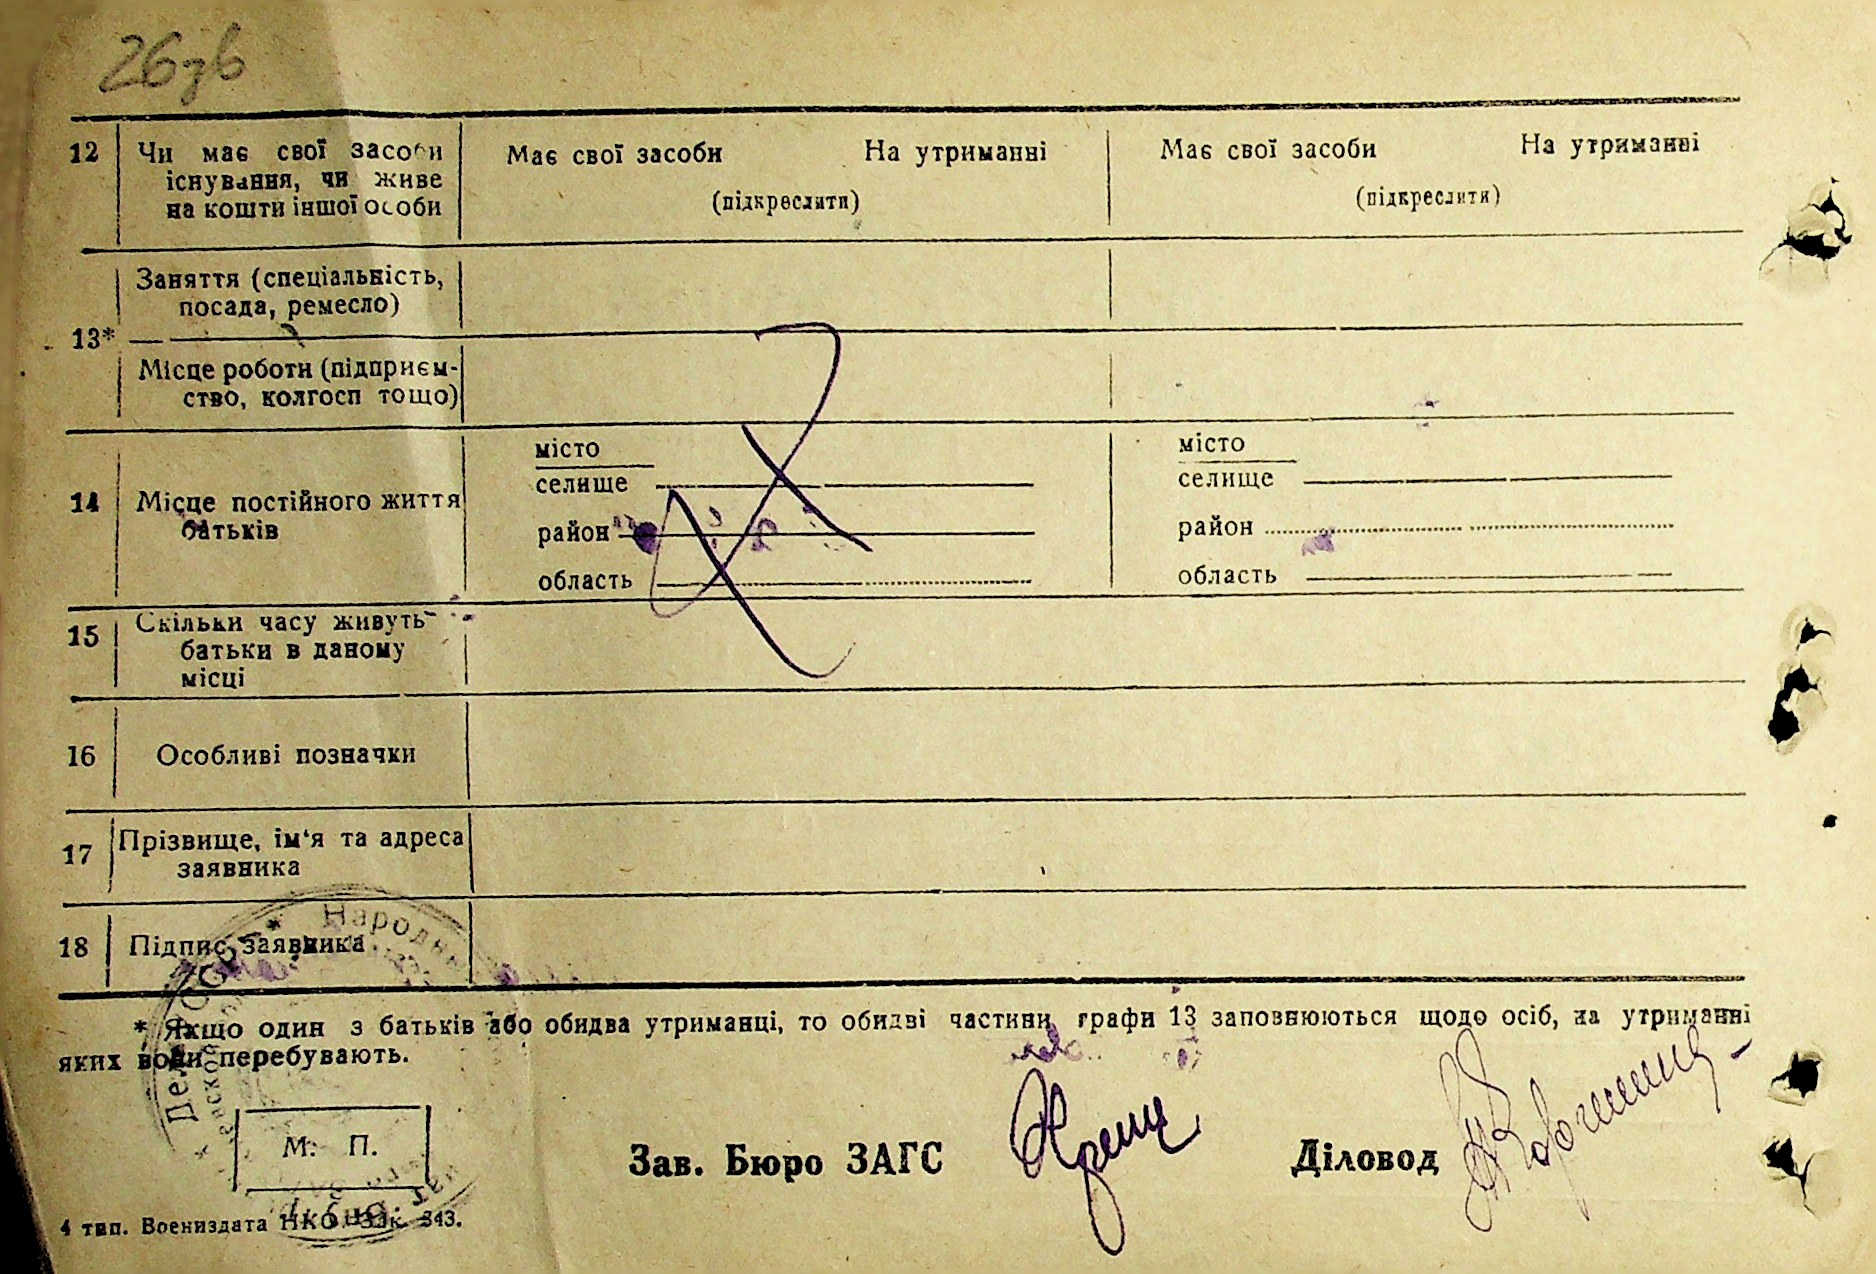 26зв
12 Чи має свої засоби Має свої засоби На утриманні Має свої засоби На утриманні
існування, чи живе
на кошти іншої особи (підкреслити) (підкреслити)
Заняття (спеціальність,
посада, ремесло)
13*
Місце роботи (підприєм-
ство, колгосп тощо)
місто місто
селище селище
14 Місце постійного життя
батьків район район
область область
15 Скільки часу живуть
батьки в даному
місці
16 Особливі позначки
17 Прізвище, ім‘я та адреса
заявника
18 Підпис заявника
Народн
* Якщо один з батьків або обидва утриманці, то обидві частини графи 13 заповнюються щодо осіб, на утриманні
яких вони перебувають.
М. П.
Зав. Бюро ЗАГС Діловод
4 тип. Воениздата НКО. Зак. 343.